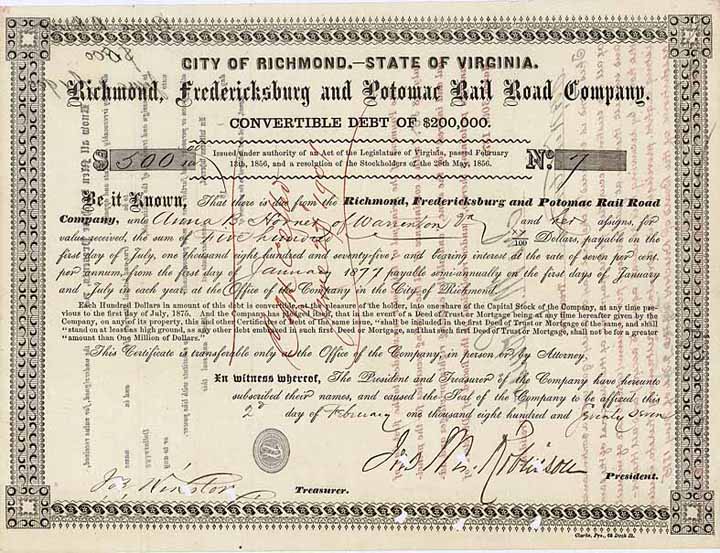 CITY OF RICHMOND.—STATE OF VIRGINIA.
Richmond, Fredericksburg and Potomac Rail Road Company.
CONVERTIBLE DEBT OF $200,000.
$ 500 Issued under authority of an Act of the Legislature of Virginia, passed February No. 7
13th, 1856, and a resolution of the Stockholders of the 28th May, 1856.
Be it Known, That there is due from the Richmond, Fredericksburg and Potomac Rail Road
Company, unto Anna B. of Warrenton Va and her assigns, for
value received, the sum of Five Hundred /100 Dollars, payable on the
first day of July, one thousand eight hundred and seventy-five; and bearing interest at the rate of seven per cent.
per annum, from the first day of January 1877 payable semi-annually on the first days of January
and July in each year, at the Office of the Company in the City of Richmond.
Each Hundred Dollars in amount of this debt is convertible, at the pleasure of the holder, into one share of the Capital Stock of the Company, at any time pre-
vious to the first day of July, 1875. And the Company has pledged itself, that in the event of a Deed of Trust or Mortgage being at any time hereafter given by the
Company, on any of its property, this and other Certificates of Debt of the same issue, "shall be included in the first Deed of Trust or Mortgage of the same, and shall
"stand on at least as high ground, as any other debt embraced in such first Deed or Mortgage, and that such first Deed of Trust or Mortgage, shall not be for a greater
"amount than One Million of Dollars."
This Certificate is transferable only at the Office of the Company, in person or by Attorney.
In witness whereof, The President and Treasurer of the Company have hereunto
subscribed their names, and caused the Seal of the Company to be affixed, this
2d day of February one thousand eight hundred and Seventy Seven
Jno M. Robinson President.
Jos. Winston Treasurer.
Clarke, Pro.,